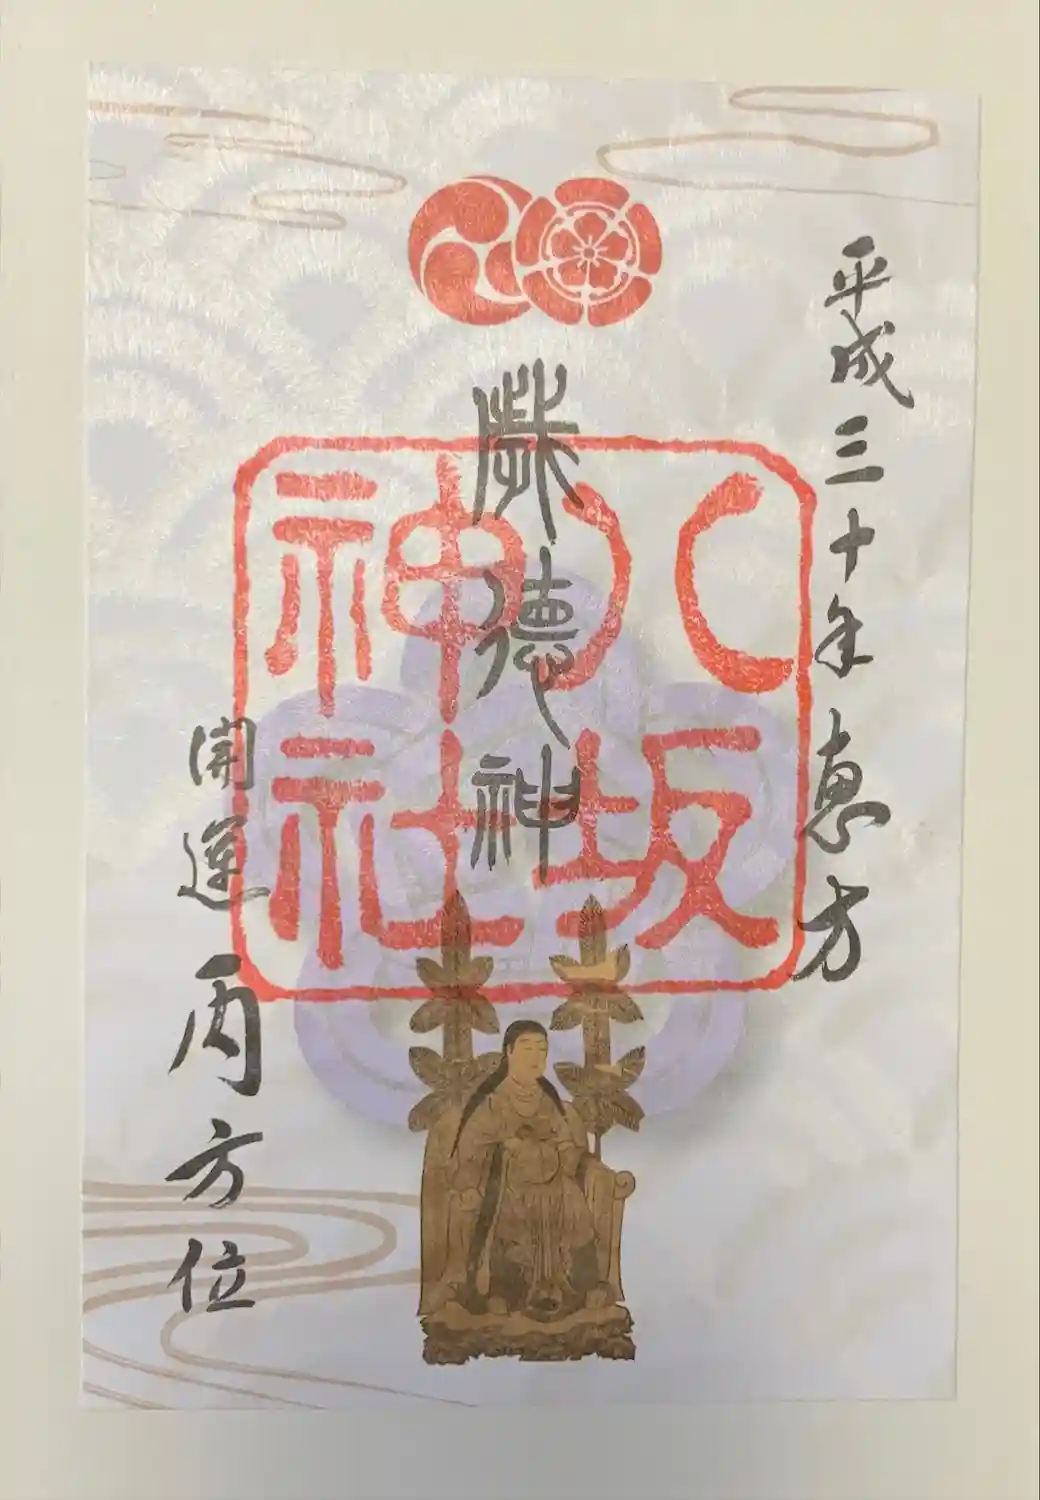 平成三十年恵方
歳徳神
開運丙方位
八坂
神社